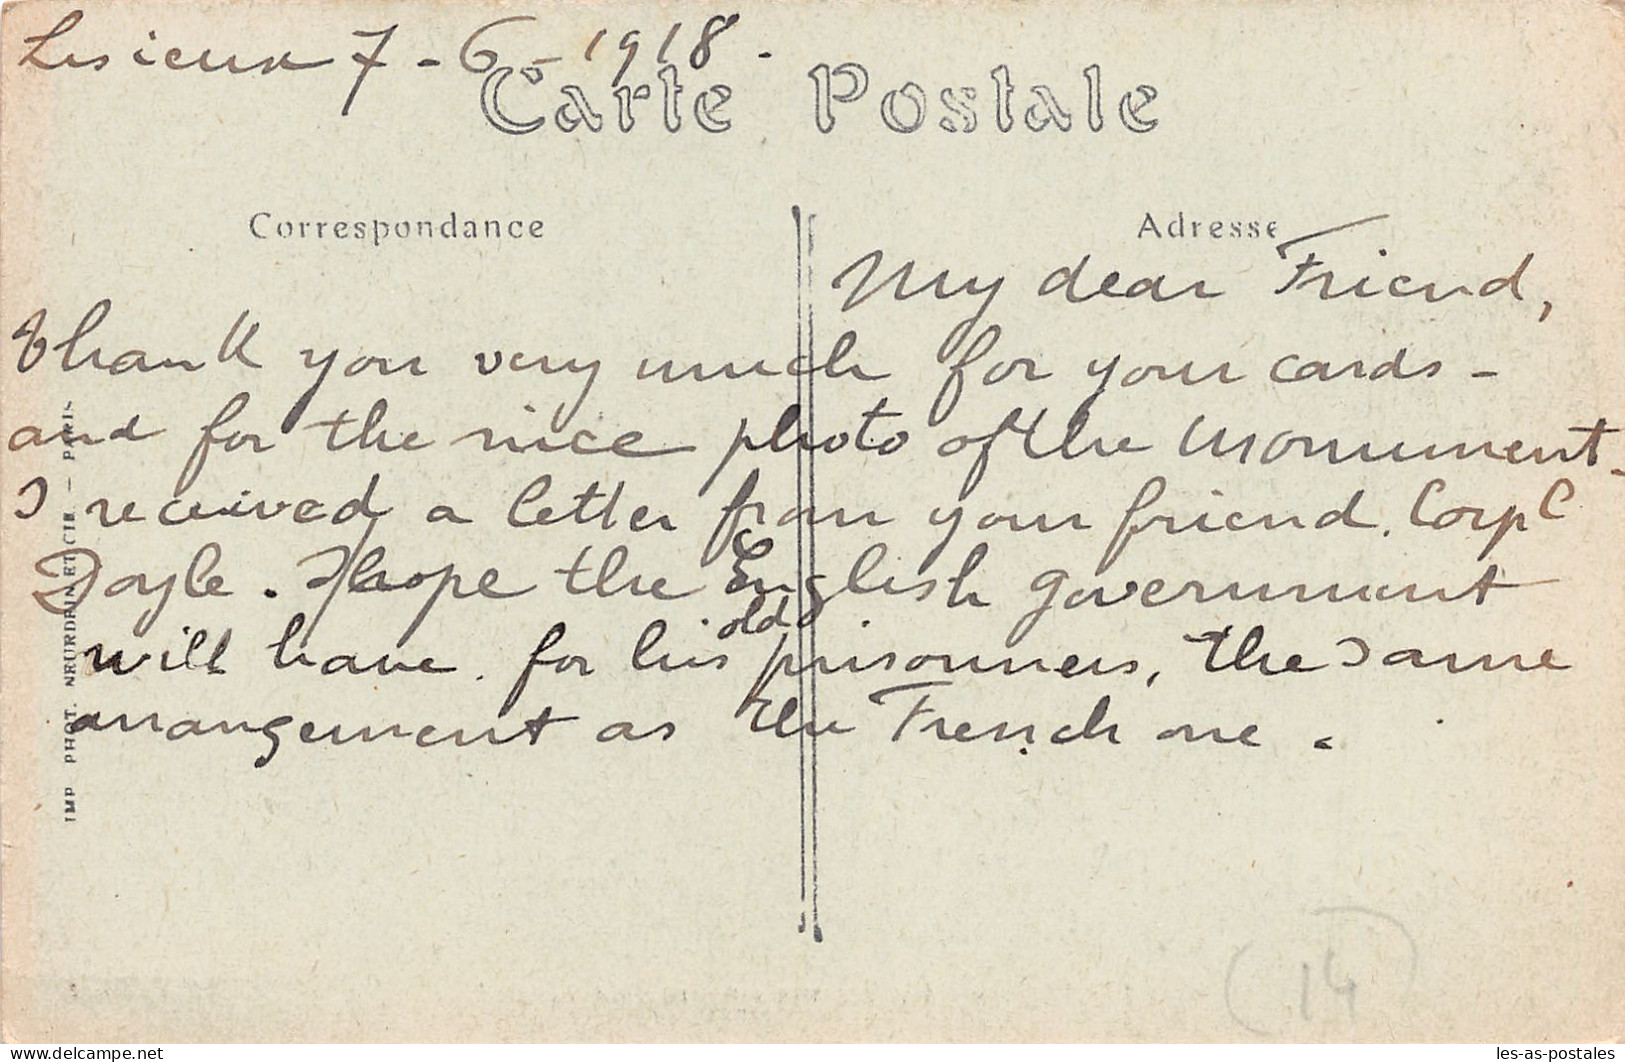 Lisieux 7-6-1918.
Carte Postale
Correspondance
Adresse
My dear Friend,
Thank you very much for your cards -
and for the nice photo of the monument -
I received a letter from your friend. Corpl
Doyle. I hope the English government
will have for his old prisonners, the same
arrangement as the French one.
IMP PHOT. NEURDEIN ET CIE - PARIS
(14)
les-as-postales
delcampe.net